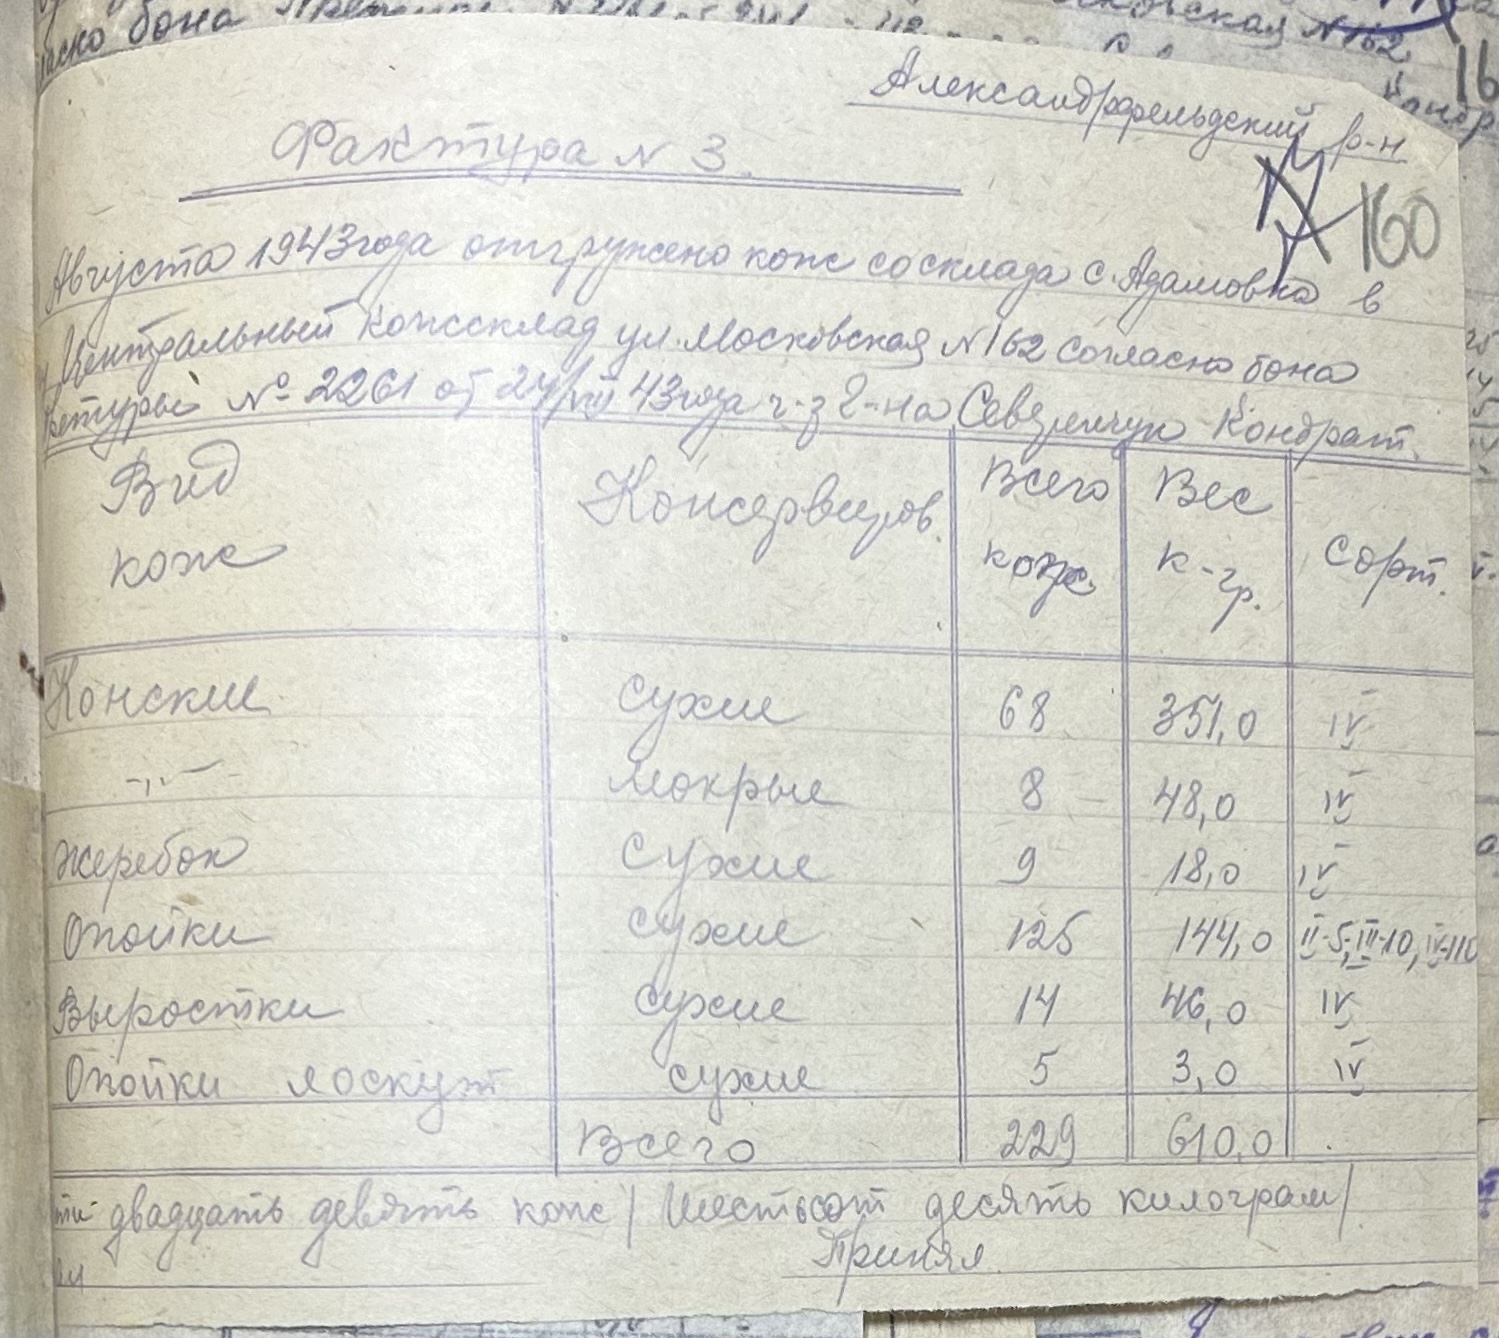 бона
овская N 162
16
Александрфельдский р-н
Фактура N 3.
160
Августа 1943 года отгружено кож со склада с. Адамовка в
Центральный Кожсклад ул. Московская N 162 согласно бона
ктуры № 2261 от 24/VIII 43 года ч-з г-на Кондрат.
Вид кож
Консервиров.
Всего кож.
Вес к-гр.
Сорт.
Конские сухие 68 351,0 IV
-"- мокрые 8 48,0 IV
Жеребок сухие 9 18,0 IV
Опойки сухие 125 144,0 II-5, III-10, IV-110
Выростки сухие 14 46,0 IV
Опойки лоскут сухие 5 3,0 IV
Всего 229 610,0
сти двадцать девять кож / Шестьсот десять килограм /
Принял